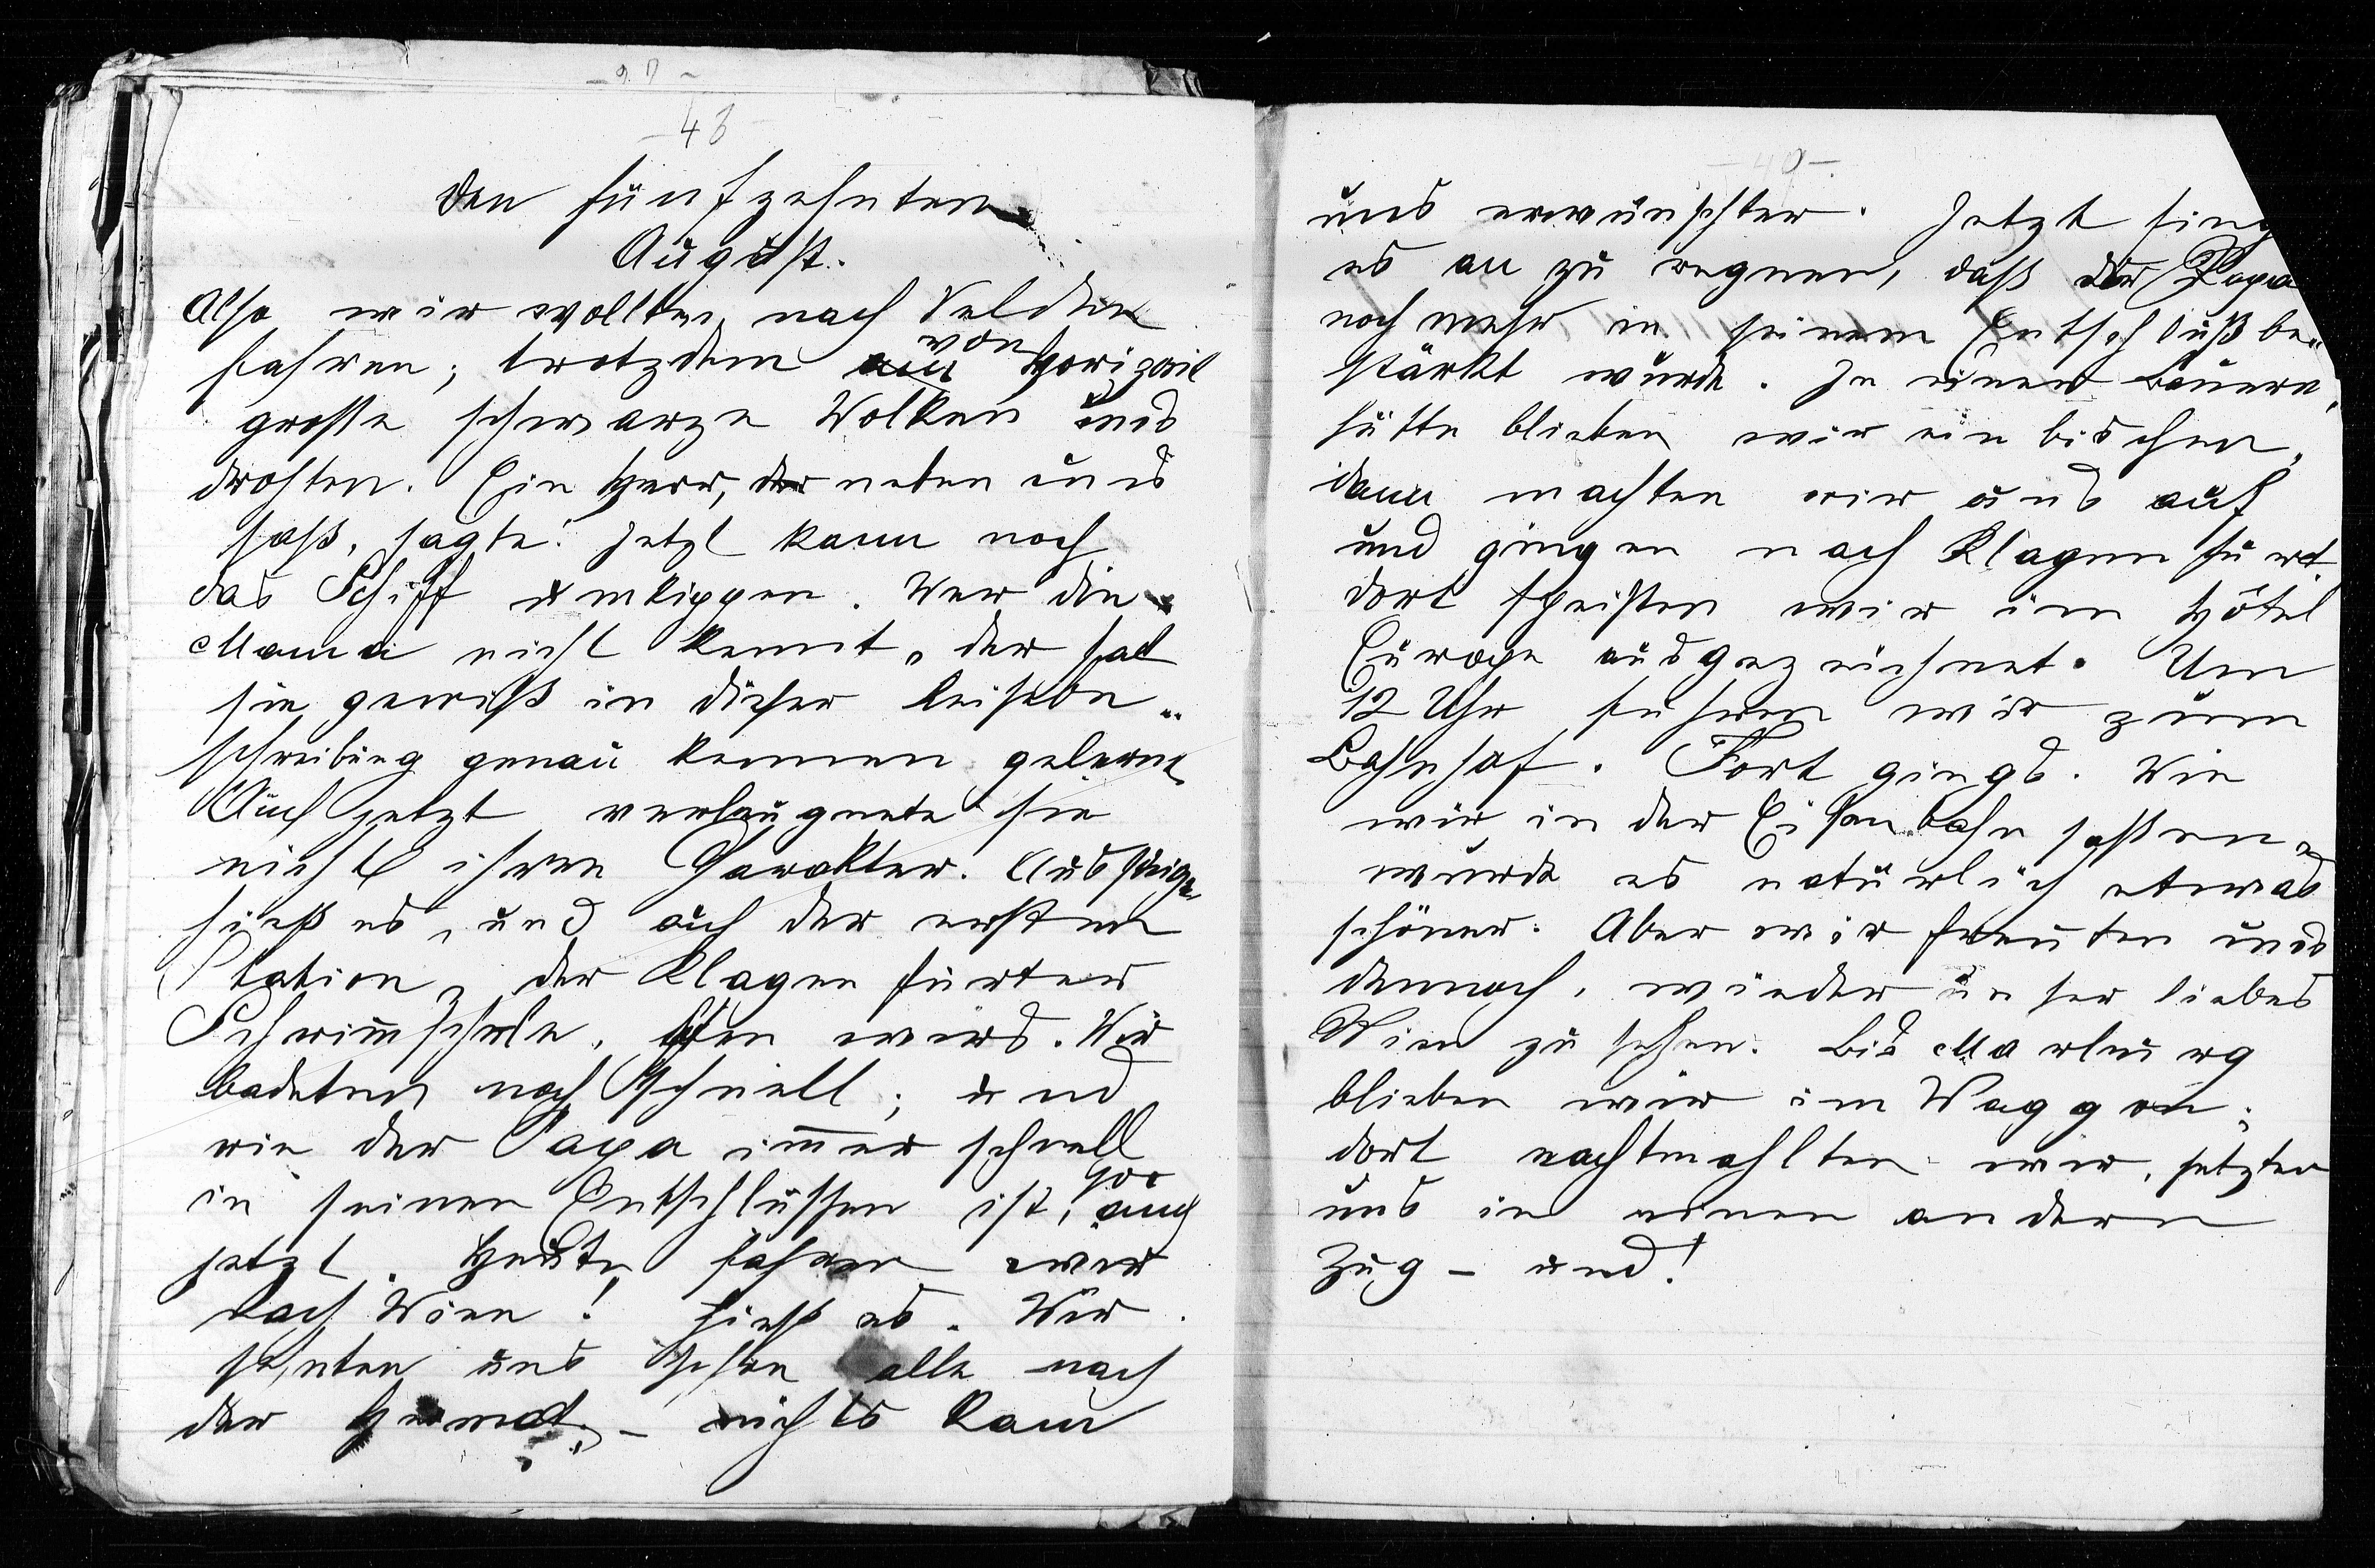 -48-
den fünfzehnten
August.
Also wir wollten nach Velden
fahren; trotzdem von Horizont
grosse schwarze Wolken uns
drohten. Ein Herr, der neben uns
saß, sagte: Jetzt kann noch
das Schiff umkippen. Wer die
Mama nicht kennt, der hat
sie gewiß in dieser Reisebe„
schreibung genau kennen gelernt.
Auch jetzt verleugnete sie
nicht ihren Charakter. Aussteigen
hieß es, und auf der ersten
Station, der Klagenfurter
Schwim̄schule, wirds. Wir
badeten noch schnell; und
wie der Papa im̄er schnell
in seinen Entschlüssen ist, so auch
jetzt. Heute fahren wir
nach Wien! hieß es. Wir
sehnten uns schon alle nach
der Heimat; - nichts kam
-49-
uns erwünschter. Jetzt fing
es an zu regnen, daß der Papa
noch mehr in seinem Entschluß be„
stärkt wurde. In einer Bauern„
hütte blieben wir ein bischen,
dann machten wir uns auf
und gingen nach Klagenfurt.
dort speisten wir im Hôtel
Europe ausgezeichnet. Um
12 Uhr fuhren wir zum
Bahnhof. Fort gings. Wie
wir in der Eisenbahn saßen,
wurde es natürlich etwas
schöner. Aber wir freuten uns
dennoch, wieder unser liebes
Wien zu sehen. Bis Marburg
blieben wir im Waggon;
dort nachtmahlten wir, setzten
uns in einen andern
Zug - und!